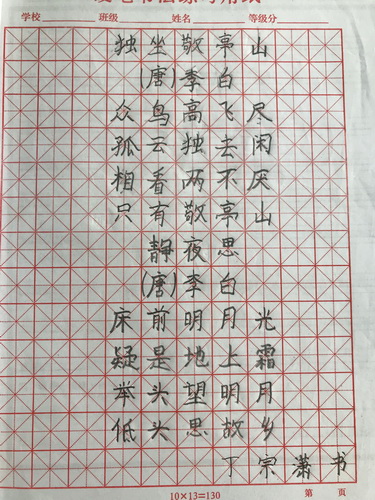 学校 班级 姓名 等级分
独坐敬亭山
(唐)季白
众鸟高飞尽
孤云独去闲
相看两不厌
只有敬亭山
静夜思
(唐)李白
床前明月光
疑是地上霜
举头望明月
低头思故乡
丁宗潇书
10×13=130 第 页